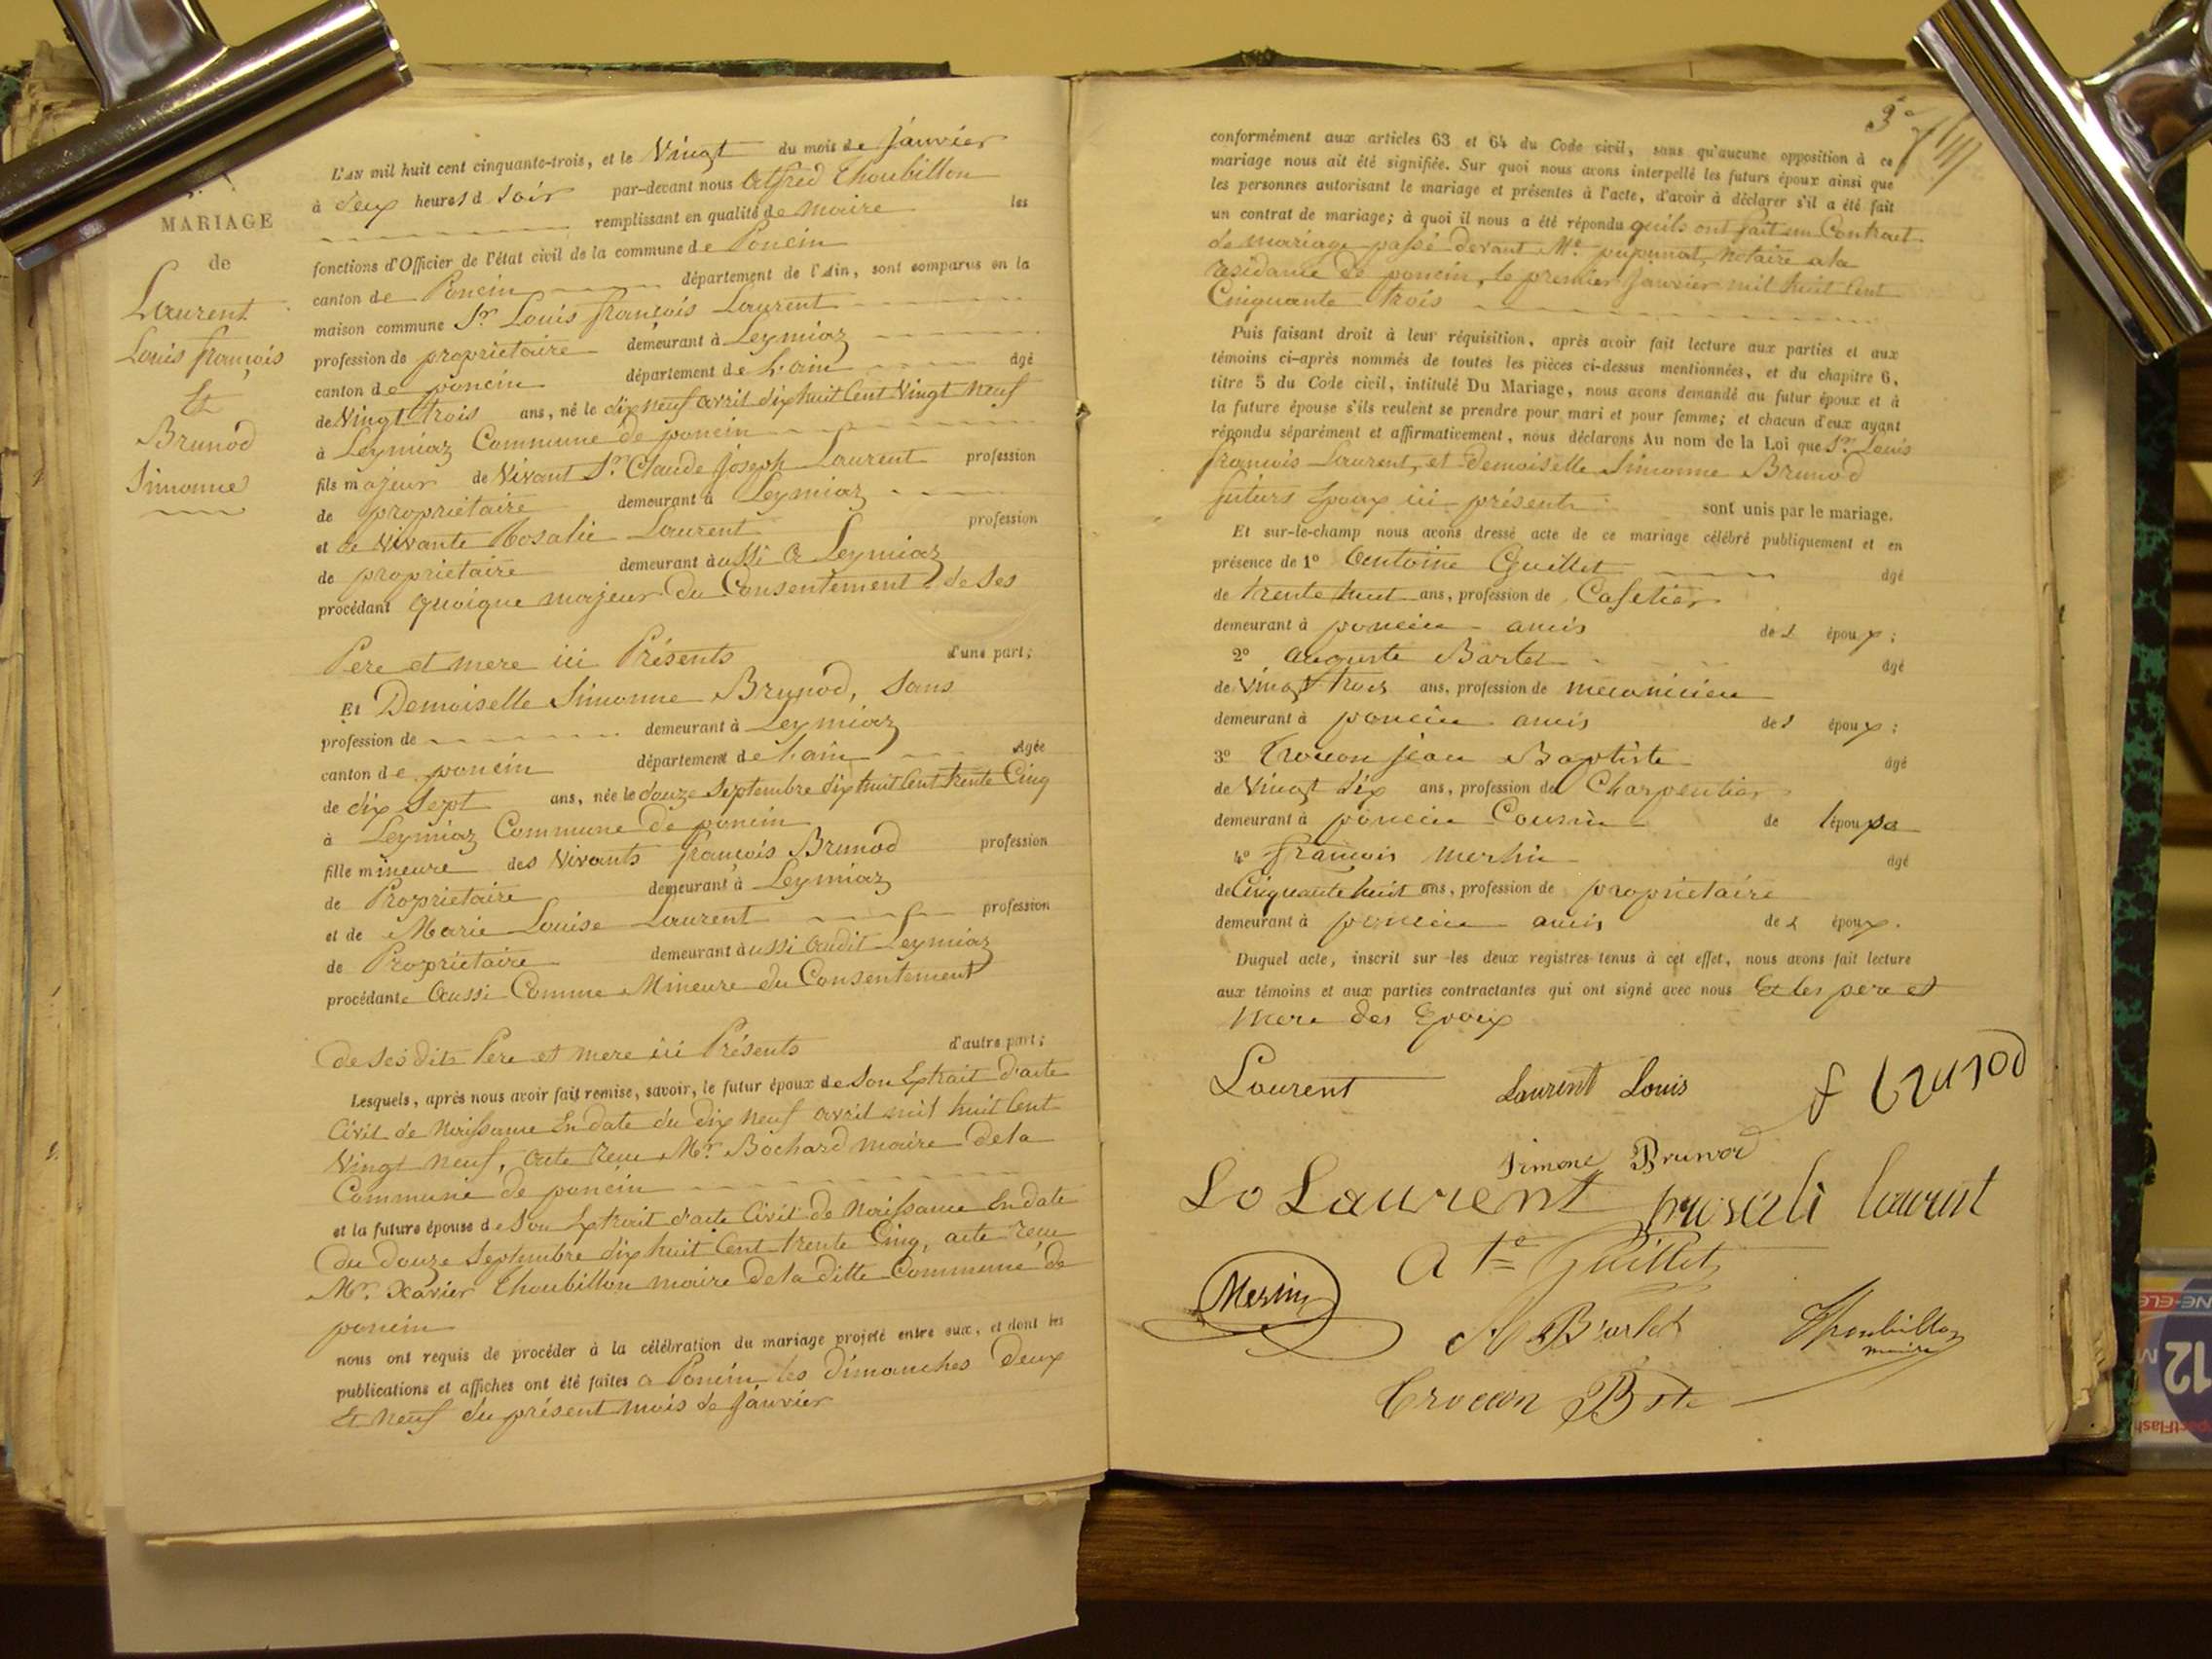 MARIAGE
de
Laurent
Louis françois
Et
Brunod
Simonne
L'AN mil huit cent cinquante-trois, et le Vingt du mois de Janvier
à deux heures d soir par-devant nous Alfred Thoubillon
remplissant en qualité de maire les
fonctions d'Officier de l'état civil de la commune de Poncin
canton de Poncin département de l'Ain, sont comparus en la
maison commune Sr. Louis françois Laurent
profession de proprietaire demeurant à Leymiaz
canton de poncin département de l'ain âgé
de Vingt trois ans, né le dix neuf avril dix huit Cent Vingt neuf
à Leymiaz Commune de poncin
fils majeur de Vivant Sr. Claude Joseph Laurent profession
de proprietaire demeurant à Leymiaz
et de Vivante Rosalie Laurent profession
de proprietaire demeurant à ussi a Leymiaz
procédant quoique majeur du Consentement de Ses
Pere et mere ici Présents d'une part;
Et Demoiselle Simonne Brunod, Sans
profession de demeurant à Leymiaz
canton de poncin département de l'ain Agée
de dix Sept ans, née le douze Septembre dix huit Cent trente Cinq
à Leymiaz Commune de poncin
fille mineure des Vivants françois Brunod profession
de Proprietaire demeurant à Leymiaz
et de Marie Louise Laurent profession
de Proprietaire demeurant à ussi audit Leymiaz
procédante aussi Comme Mineure du Consentement
de Ses dits Pere et mere ici Présents d'autre part;
Lesquels, après nous avoir fait remise, savoir, le futur époux de Son Extrait d'acte
Civil de Naissance En date du dix neuf avril mil huit Cent
Vingt neuf, acte recu Mr. Bochard maire de la
Commune de poncin
et la future épouse de Son Extrait d'acte Civil de Naissance En date
du douze Septembre dix huit Cent trente Cinq, acte recu
Mr. Xavier Thoubillon maire de la ditte Commune de
poncin
nous ont requis de procéder à la célébration du mariage projeté entre eux, et dont les
publications et affiches ont été faites a Poncin les dimanches Deux
Et Neuf du présent mois de Janvier
3e
conformément aux articles 63 et 64 du Code civil, sans qu'aucune opposition à ce
mariage nous ait été signifiée. Sur quoi nous avons interpellé les futurs époux ainsi que
les personnes autorisant le mariage et présentes à l'acte, d'avoir à déclarer s'il a été fait
un contrat de mariage; à quoi il nous a été répondu quils ont fait un Contrat
de mariage passé devant Me. notaire a la
residance de poncin, le premier Janvier mil huit Cent
Cinquante trois
Puis faisant droit à leur réquisition, après avoir fait lecture aux parties et aux
témoins ci-après nommés de toutes les pièces ci-dessus mentionnées, et du chapitre 6,
titre 5 du Code civil, intitulé Du Mariage, nous avons demandé au futur époux et à
la future épouse s'ils veulent se prendre pour mari et pour femme; et chacun d'eux ayant
répondu séparément et affirmativement, nous déclarons Au nom de la Loi que Sr. Louis
francois Laurent, et Demoiselle Simonne Brunod
futurs Epoux ici présents sont unis par le mariage.
Et sur-le-champ nous avons dressé acte de ce mariage célébré publiquement et en
présence de 1º Antoine Guillet âgé
de trente huit ans, profession de Cafetier
demeurant à poncin amis de s époux;
2º auguste Bartet âgé
de Vingt trois ans, profession de mecanicien
demeurant à poncin amis de s époux;
3º Trocon jean Baptiste âgé
de Vingt dix ans, profession de Charpentier
demeurant à poncin Cousin de l'épouse
4º francois merlin âgé
de Cinquante huit ans, profession de proprietaire
demeurant à poncin amis de s époux.
Duquel acte, inscrit sur les deux registres tenus à cet effet, nous avons fait lecture
aux témoins et aux parties contractantes qui ont signé avec nous Et les pere et
Mere des Epoux
Laurent Laurent Louis f brunod
Simone Brunod
Lo Laurent rosali laurent
A te Guillet
Merlin A Bartet Thoubillon
maire
Trocon Bte
12